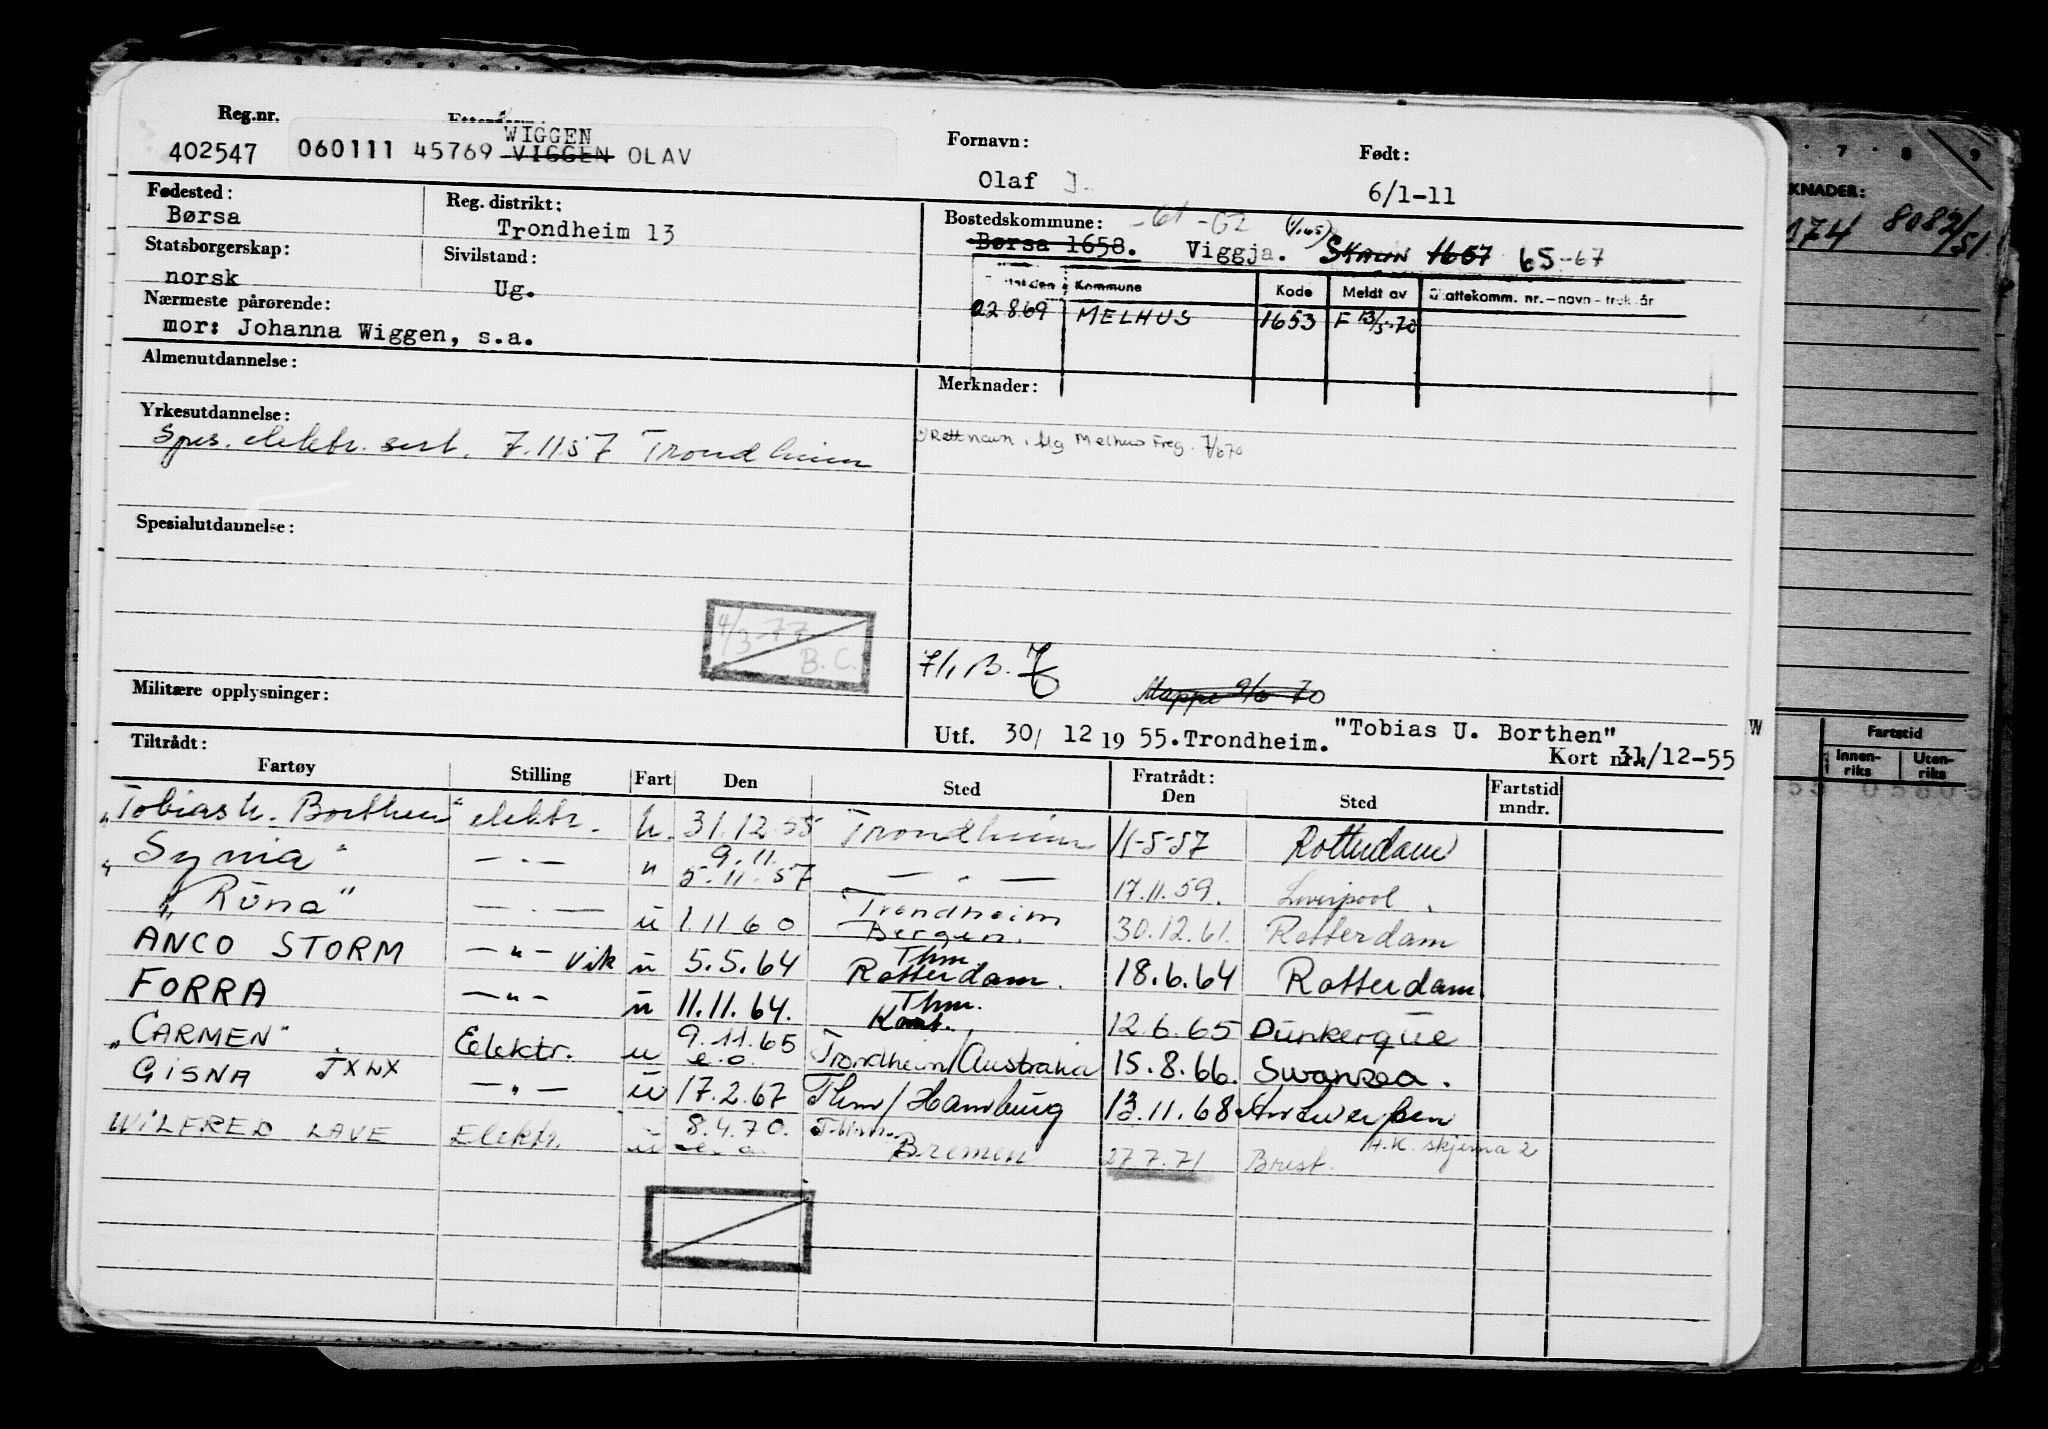 Reg.nr. Etternavn: Fornavn: Født:
402547 060111 45769 WIGGEN VIGGEN OLAV
Olaf J. 6/1-11
Fødested: Børsa
Reg. distrikt: Trondheim 13
Bostedskommune: -61 -62
Børsa 1658. Viggja. SKAUN 1657 65-67
Statsborgerskap: norsk
Sivilstand: Ug.
Kommune Kode Meldt av Skattekomm. nr. – navn – trek. år
22869 MELHUS 1653 F 13/5-70
Nærmeste pårørende:
mor: Johanna Wiggen, s.a.
Almenutdannelse:
Merknader:
Yrkesutdannelse:
Spes. elektr. sert. 7.11.57 Trondheim
Rett navn i flg Melhus Freg. 7/670
Spesialutdannelse:
4/3-77
B.C.
7/1 B.
Mappe 9/6 70
Militære opplysninger:
Utf. 30/ 12 19 55. Trondheim. "Tobias U. Borthen"
Kort nr. 31/12-55
W
Tiltrådt: Fratrådt:
Fartøy Stilling Fart Den Sted Den Sted Fartstid mndr.
"Tobias U. Borthen" elektr. u. 31.12.55 Trondheim 11-5-57 Rotterdam
"Synia" — " — " 9.11. 5.11.57 — " — 17.11.59. Liverpool.
"Rona" — " — u 1.11 60 Trondheim Bergen. 30.12.61. Rotterdam
ANCO STORM — " — vik u 5.5.64 Thm. Rotterdam. 18.6.64 Rotterdam.
FORRA — " — u 11.11.64. Thm. Kont. 12.6.65 Dunkerque
"CARMEN" Elektr. u 9.11.65 e.o. Trondheim/Australia 15.8.66. Swansea.
GISNA JXWX — " — u 17.2.67 Thm/Hamburg 13.11.68 Antwerpen
WILFRED LAVE Elektr. u 8.4.70. e.o. Thm. Bremen 27.7.71 Brest. A.K. skjema 2
7 8 9
KNADER:
174 8082/51
Fartstid
Innen-riks Uten-riks